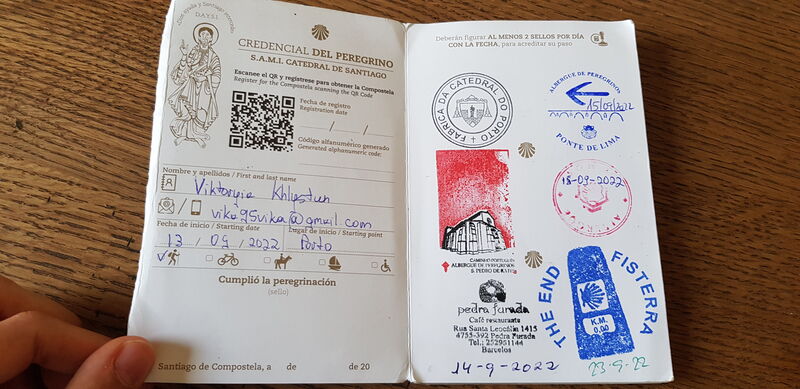 Dios Ayuda y Santiago
D.A.Y.S.I.
CREDENCIAL DEL PEREGRINO
S.A.M.I. CATEDRAL DE SANTIAGO
Escanee el QR y regístrese para obtener la Compostela
Register for the Compostela scanning the QR Code
Fecha de registro
Registration date
/ /
Código alfanumérico generado
Generated alphanumeric code:
Nombre y apellidos / First and last name
Viktoryia Khlystun
vika95vika@gmail.com
Fecha de inicio / Starting date
Lugar de inicio / Starting point
13 / 09 / 2022 Porto
Cumplió la peregrinación
(sello)
Santiago de Compostela, a de de 20
Deberán figurar AL MENOS 2 SELLOS POR DÍA
CON LA FECHA, para acreditar su paso
FABRICA DA CATEDRAL DO PORTO +
ALBERGUE DE PEREGRINOS
15/09/2022
PONTE DE LIMA
18-09-2022
CAMINHO PORTUGUÊS
ALBERGUE DE PEREGRINOS
S. PEDRO DE RATES
pedra furada
Café restaurante
Rua Santa Leocádia 1415
4755-392 Pedra Furada
Tel.: 252951144
Barcelos
14-9-2022
THE END
FISTERRA
K.M.
0,00
23-9-22